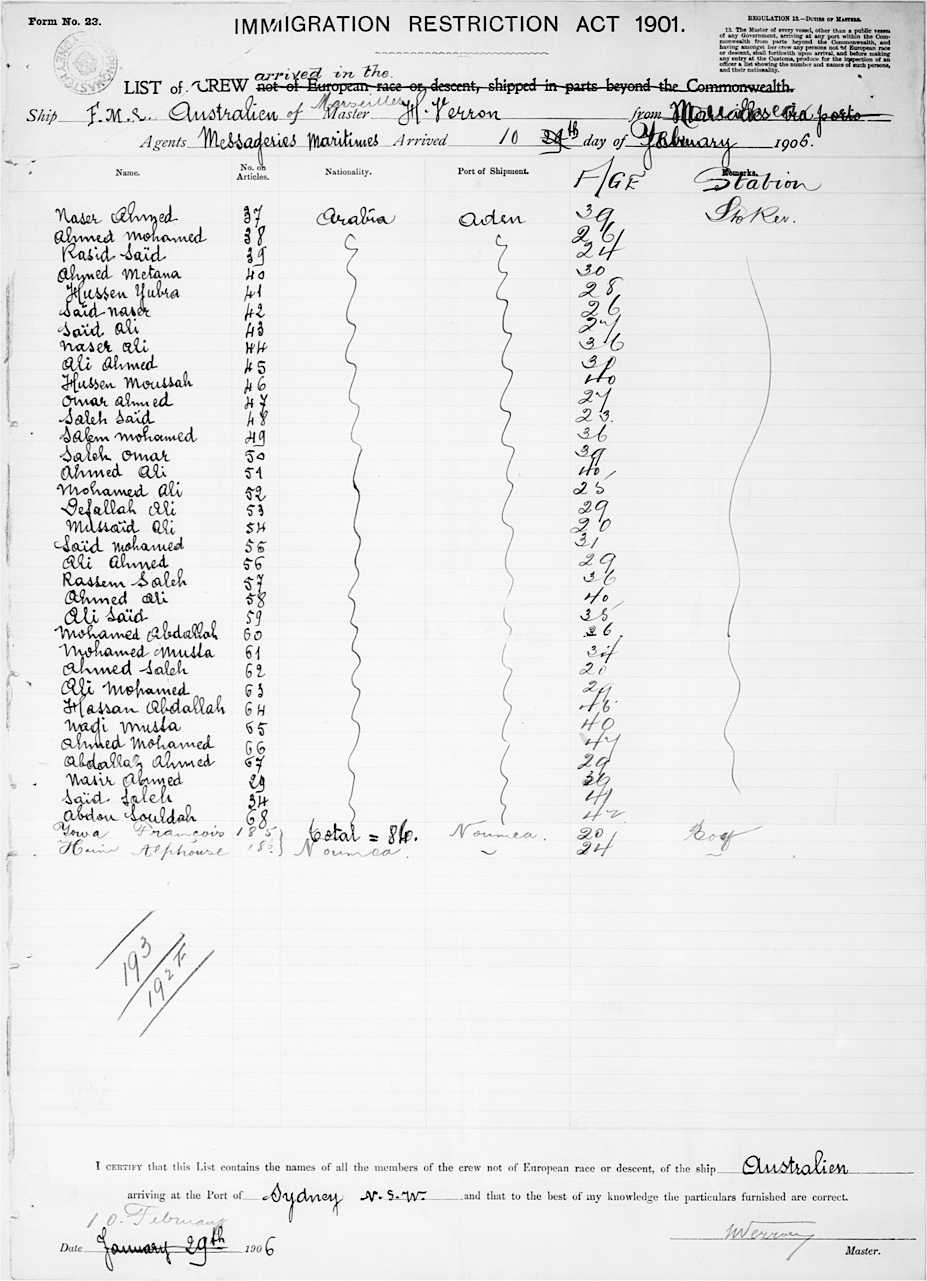 Form No. 23.
IMMIGRATION RESTRICTION ACT 1901.
REGULATION 13.—DUTIES OF MASTERS.
13. The Master of every vessel, other than a public vessel of any Government, arriving at any port within the Commonwealth from parts beyond the Commonwealth, and having amongst her crew any persons not of European race or descent, shall forthwith upon arrival, and before making any entry at the Customs, produce for the inspection of an officer a list showing the number and names of such persons, and their nationality.
arrived in the
LIST of CREW not of European race or descent, shipped in parts beyond the Commonwealth.
Ship F.M.S. Australien of Marseilles Master H. Verron from Noumea
Agents Messageries Maritimes Arrived 10 29th day of February 1906.
Name. No. on Articles. Nationality. Port of Shipment. AGE Remarks. Station
Naser Ahmed 37 Arabia Aden 39 Stoker.
Ahmed Mohamed 38 26
Rasid Saïd 39 24
Ahmed Metana 40 30
Hussen Yubra 41 28
Saïd naser 42 26
Saïd Ali 43 27
Naser Ali 44 36
Ali Ahmed 45
Hussen Moussah 46 40
Omar Ahmed 47 27
Saleh Saïd 48 23
Salem Mohamed 49 36
Saleh Omar 50 39
Ahmed Ali 51 40
Mohamed Ali 52 25
Defallah Ali 53 29
Mussaïd Ali 54 20
Saïd Mohamed 55 31
Ali Ahmed 56 29
Kassem Saleh 57 36
Ahmed Ali 58 40
Ali Saïd 59 35
Mohamed Abdallah 60 36
Mohamed Mussa 61 34
Ahmed Saleh 62
Ali Mohamed 63 29
Hassan Abdallah 64 46
Nagi Mussa 65 40
Ahmed Mohamed 66 47
Abdallah Ahmed 67 29
Nasir Ahmed 29 39
Saïd Saleh 34 41
Abdou Souldah 68 42
Yowa François 185 total = 84. Noumea. 20
Alphonse 186 Noumea 24
193
192
I CERTIFY that this List contains the names of all the members of the crew not of European race or descent, of the ship Australien
arriving at the Port of Sydney N.S.W. and that to the best of my knowledge the particulars furnished are correct.
10. February
Date January 29th 1906
HVerron Master.